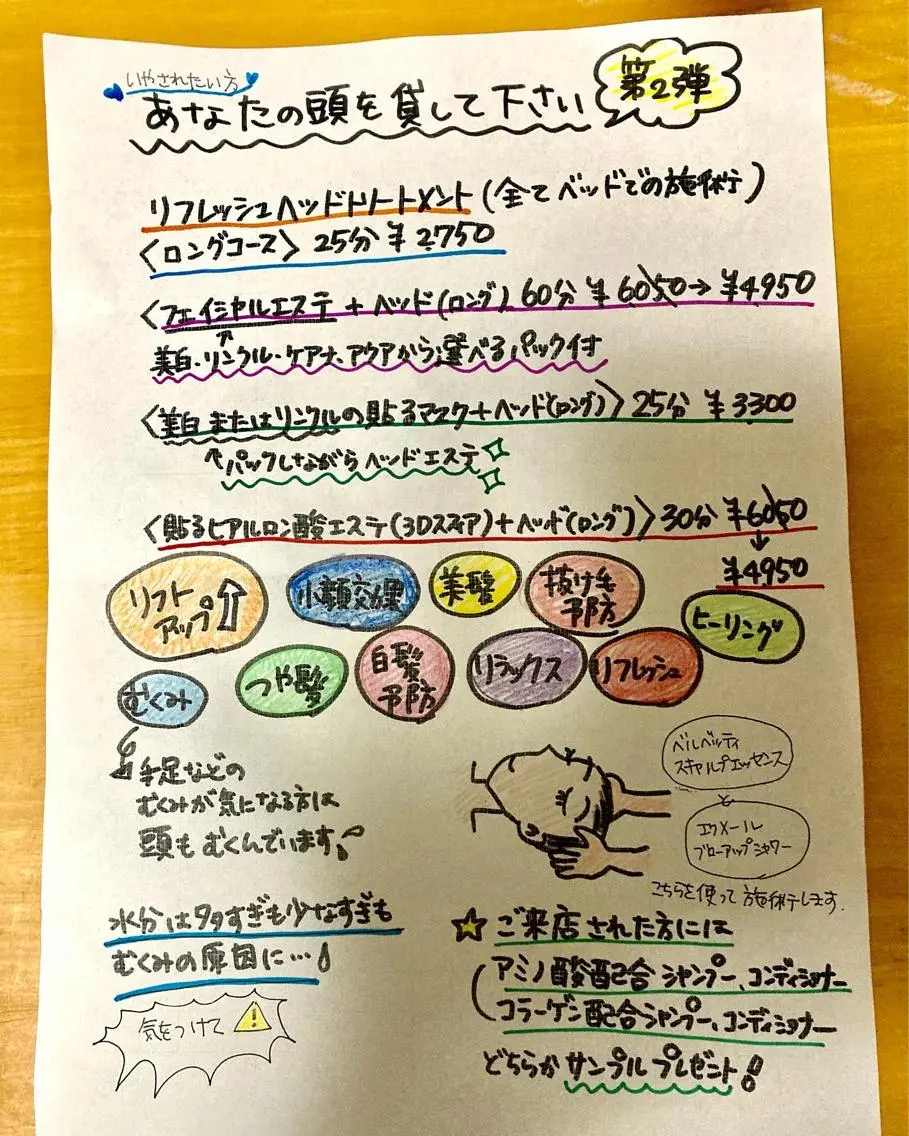 いやされたい方
あなたの頭を貸して下さい
第2弾
リフレッシュヘッドトリートメント(全てベッドでの施術)
〈ロングコース〉25分 ¥2,750
〈フェイシャルエステ+ヘッド(ロング)〉60分 ¥6050→¥4950
↑
美白・リンクル・ケアナ、アクアから選べるパック付
〈美白またはリンクルの貼るマスク+ヘッド(ロング)〉25分 ¥3300
↑パックしながらヘッドエステ
〈貼るヒアルロン酸エステ(3Dスフィア)+ヘッド(ロング)〉30分 ¥6050
↓
¥4950
リフト
アップ
小顔効果
美髪
抜け毛
予防
ヒーリング
むくみ
つや髪
白髪
予防
リラックス
リフレッシュ
手足などの
むくみが気になる方は
頭もむくんでいます!
ベルベッティ
スキャルプエッセンス
と
エクメール
ブローアップシャワー
こちらを使って施術します。
水分は多すぎも少なすぎも
むくみの原因に…!
気をつけて
☆ご来店された方には
アミノ酸配合シャンプー、コンディショナー
コラーゲン配合シャンプー、コンディショナー
どちらかサンプルプレゼント!